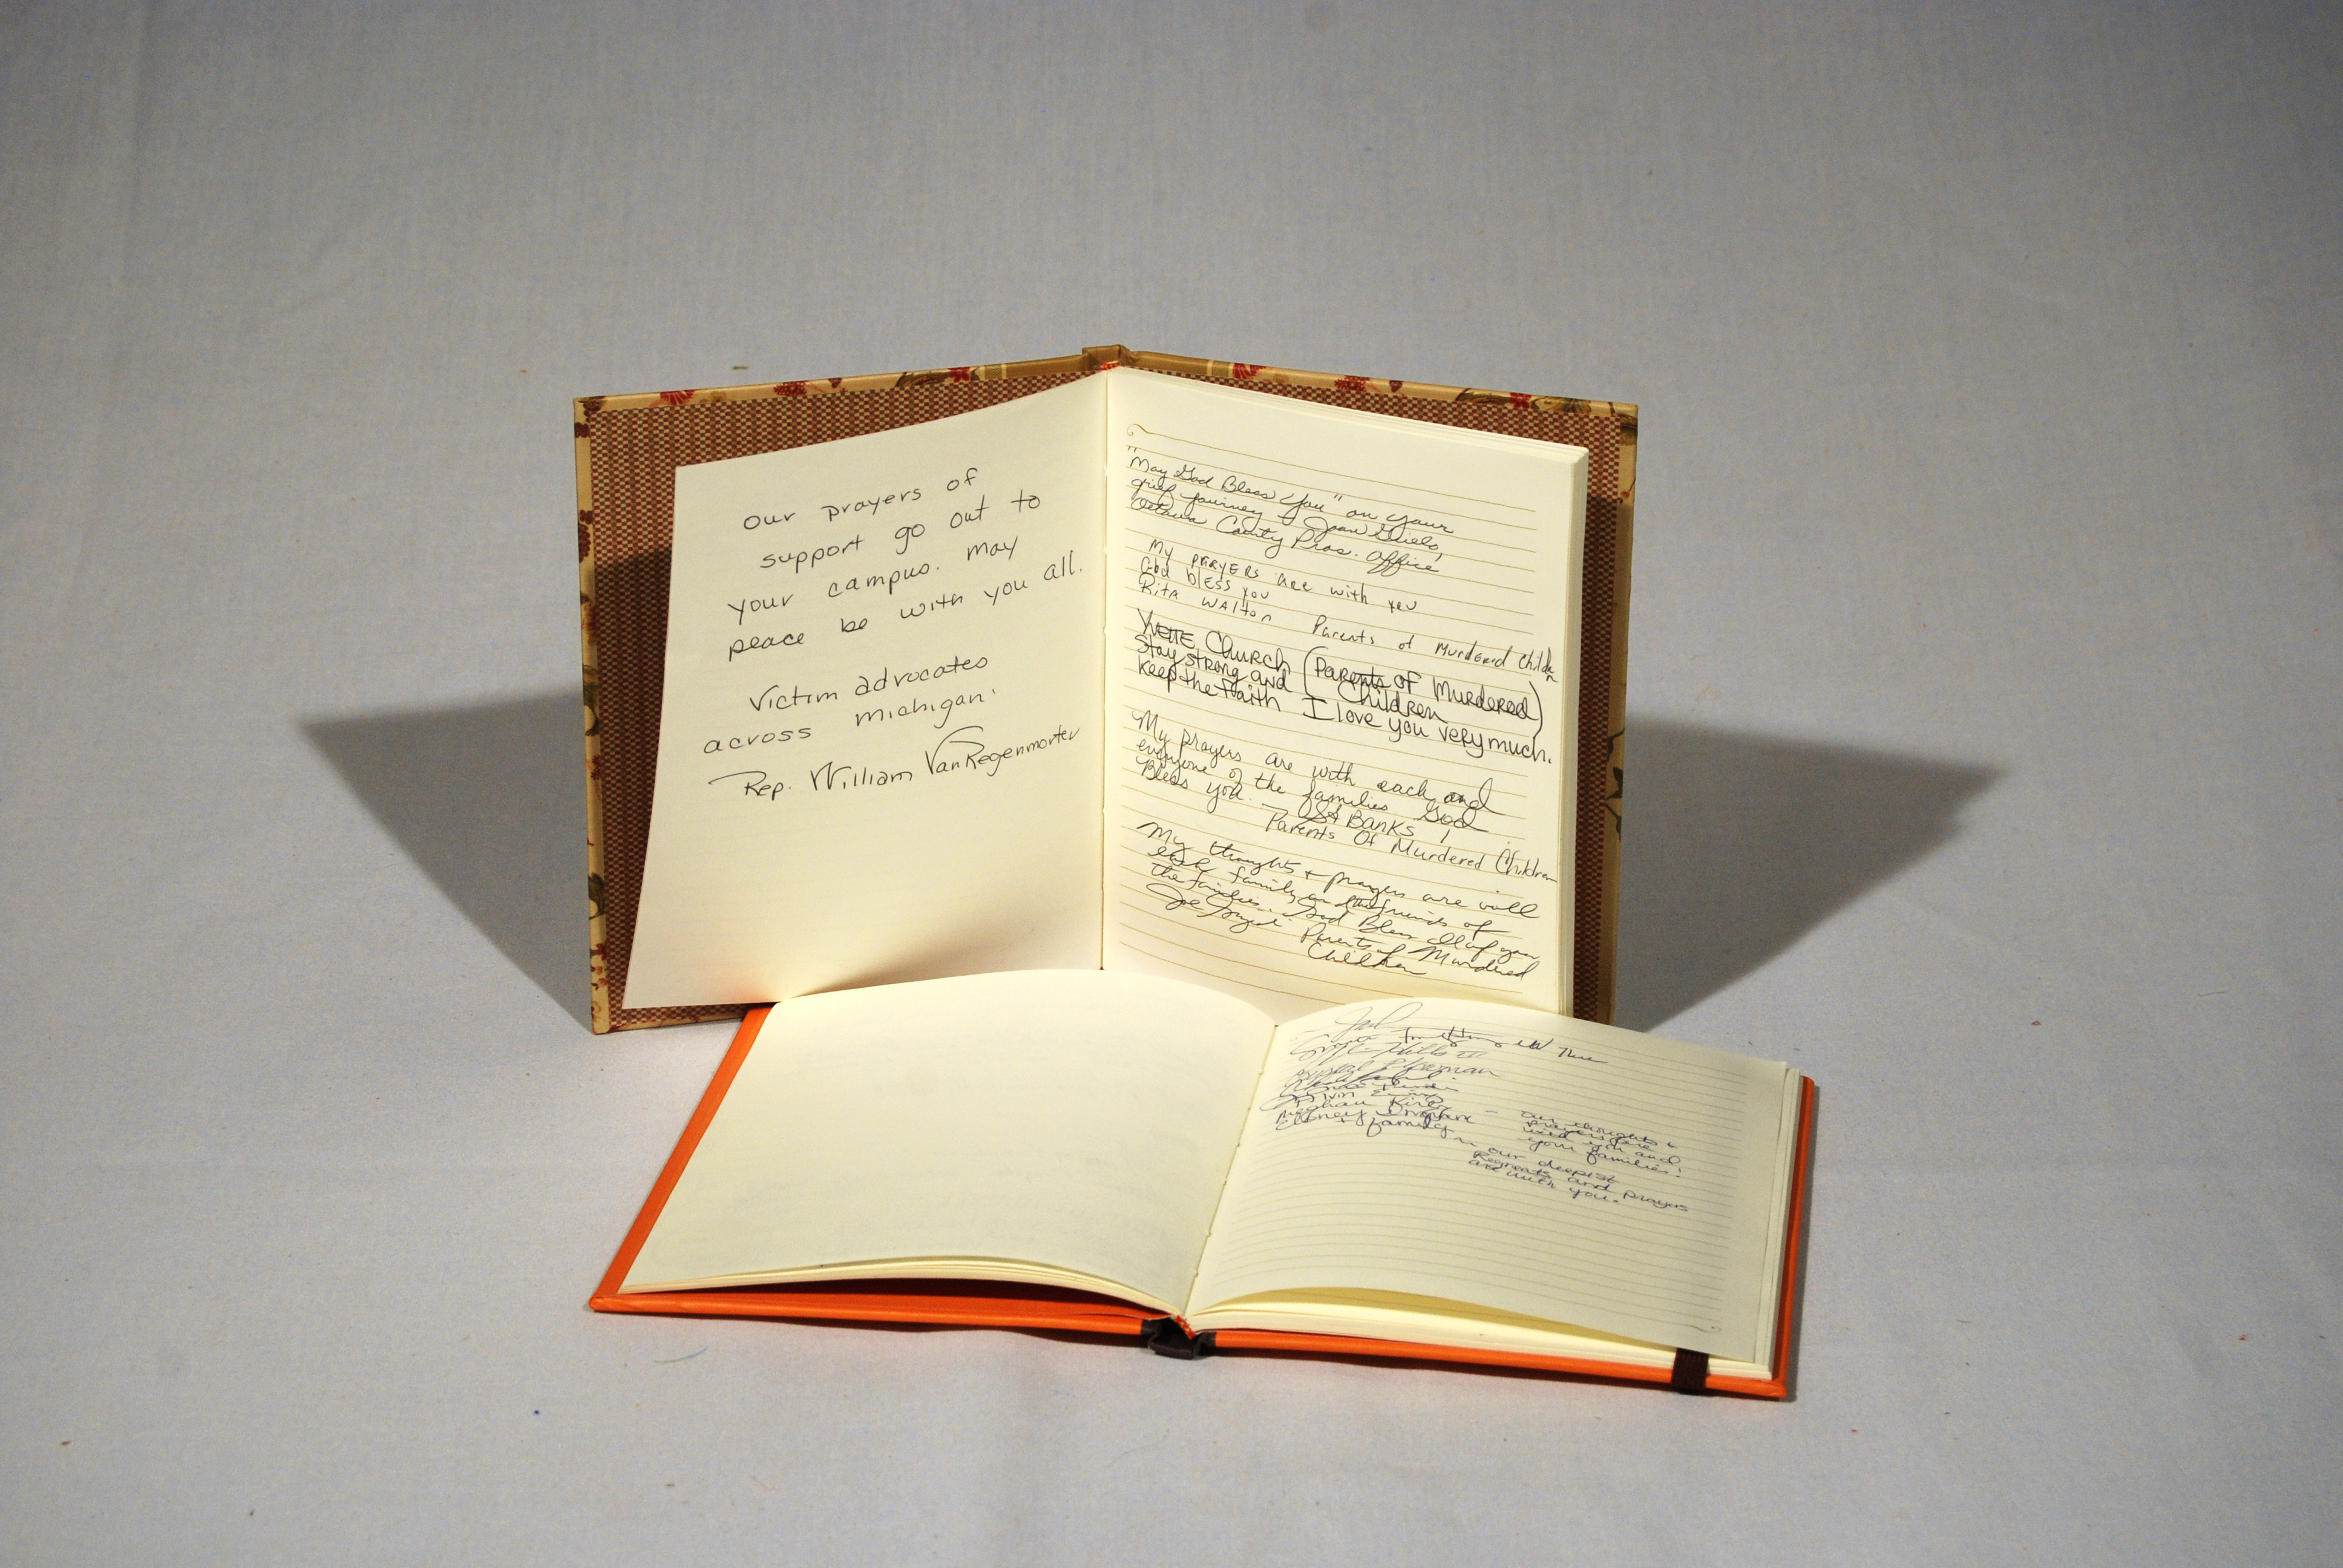 Our prayers of
support go out to
your campus. May
peace be with you all.
Victim advocates
across Michigan.
Rep. William VanRegenmorter
"May God Bless You" on your
grief journey
Ottawa County Pros. Office
My PRAYERS are with you
God blESS you
Rita Walton Parents of Murdered Children
YVETTE Church (Parents of Murdered)
Stay strong and Children
Keep the Faith I love you very much.
My prayers are with each and
everyone of the families God
Bless you. Banks,
Parents Of Murdered Children
My thoughts + prayers are will
each family and the friends of
the families. God Bless all of you
Joe Parents of Murdered
Children
Meghan
family
our thoughts &
prayers are
with you and
your families.
our deepist
Regreats and prayers
are with you.